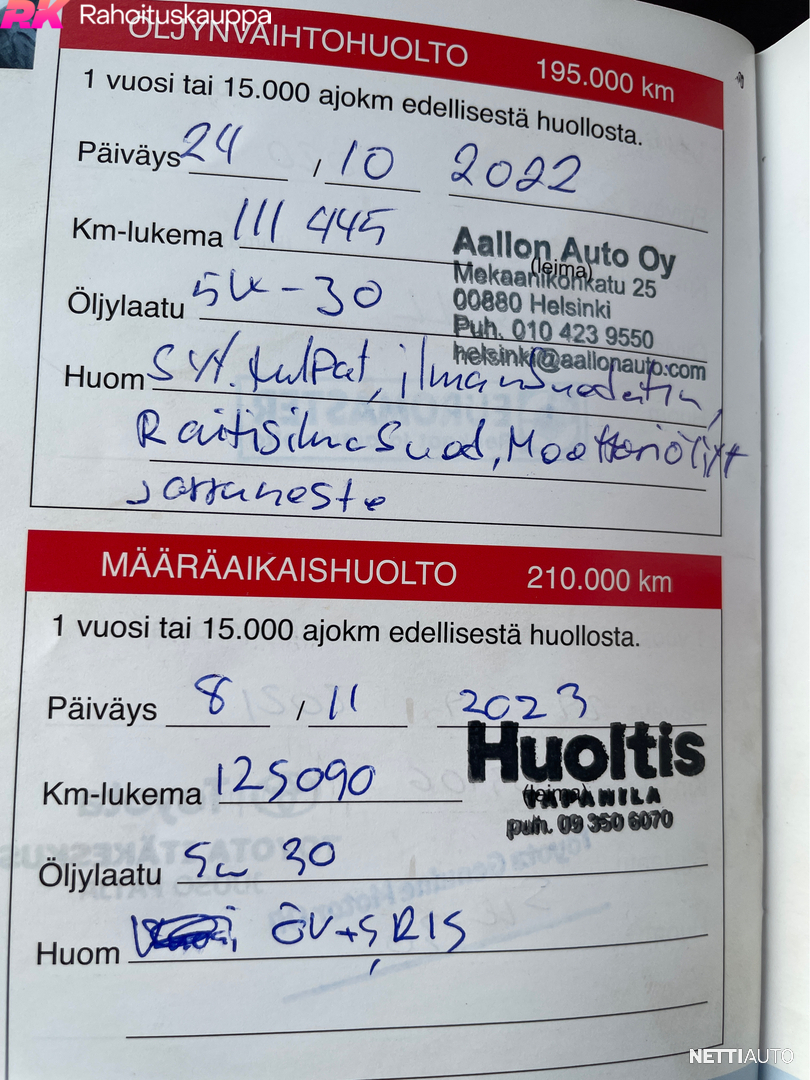 RK Rahoituskauppa
ÖLJYNVAIHTOHUOLTO 195.000 km
1 vuosi tai 15.000 ajokm edellisestä huollosta.
Päiväys 24 / 10 2022
Km-lukema 111 445
Aallon Auto Oy
(leima)
Mekaanikonkatu 25
Öljylaatu 5W-30
00880 Helsinki
Puh. 010 423 9550
helsinki@aallonauto.com
Huom Syt.tulpat, ilmansuodatin,
Raitisilmasuod, Moottoriöljyt
Jarruneste
MÄÄRÄAIKAISHUOLTO 210.000 km
1 vuosi tai 15.000 ajokm edellisestä huollosta.
Päiväys 8 / 11 2023
Huoltis
(leima)
TAPANILA
Km-lukema 125090
puh. 09 350 6070
Öljylaatu 5w 30
Huom ÖV+S, RIS
NETTIAUTO